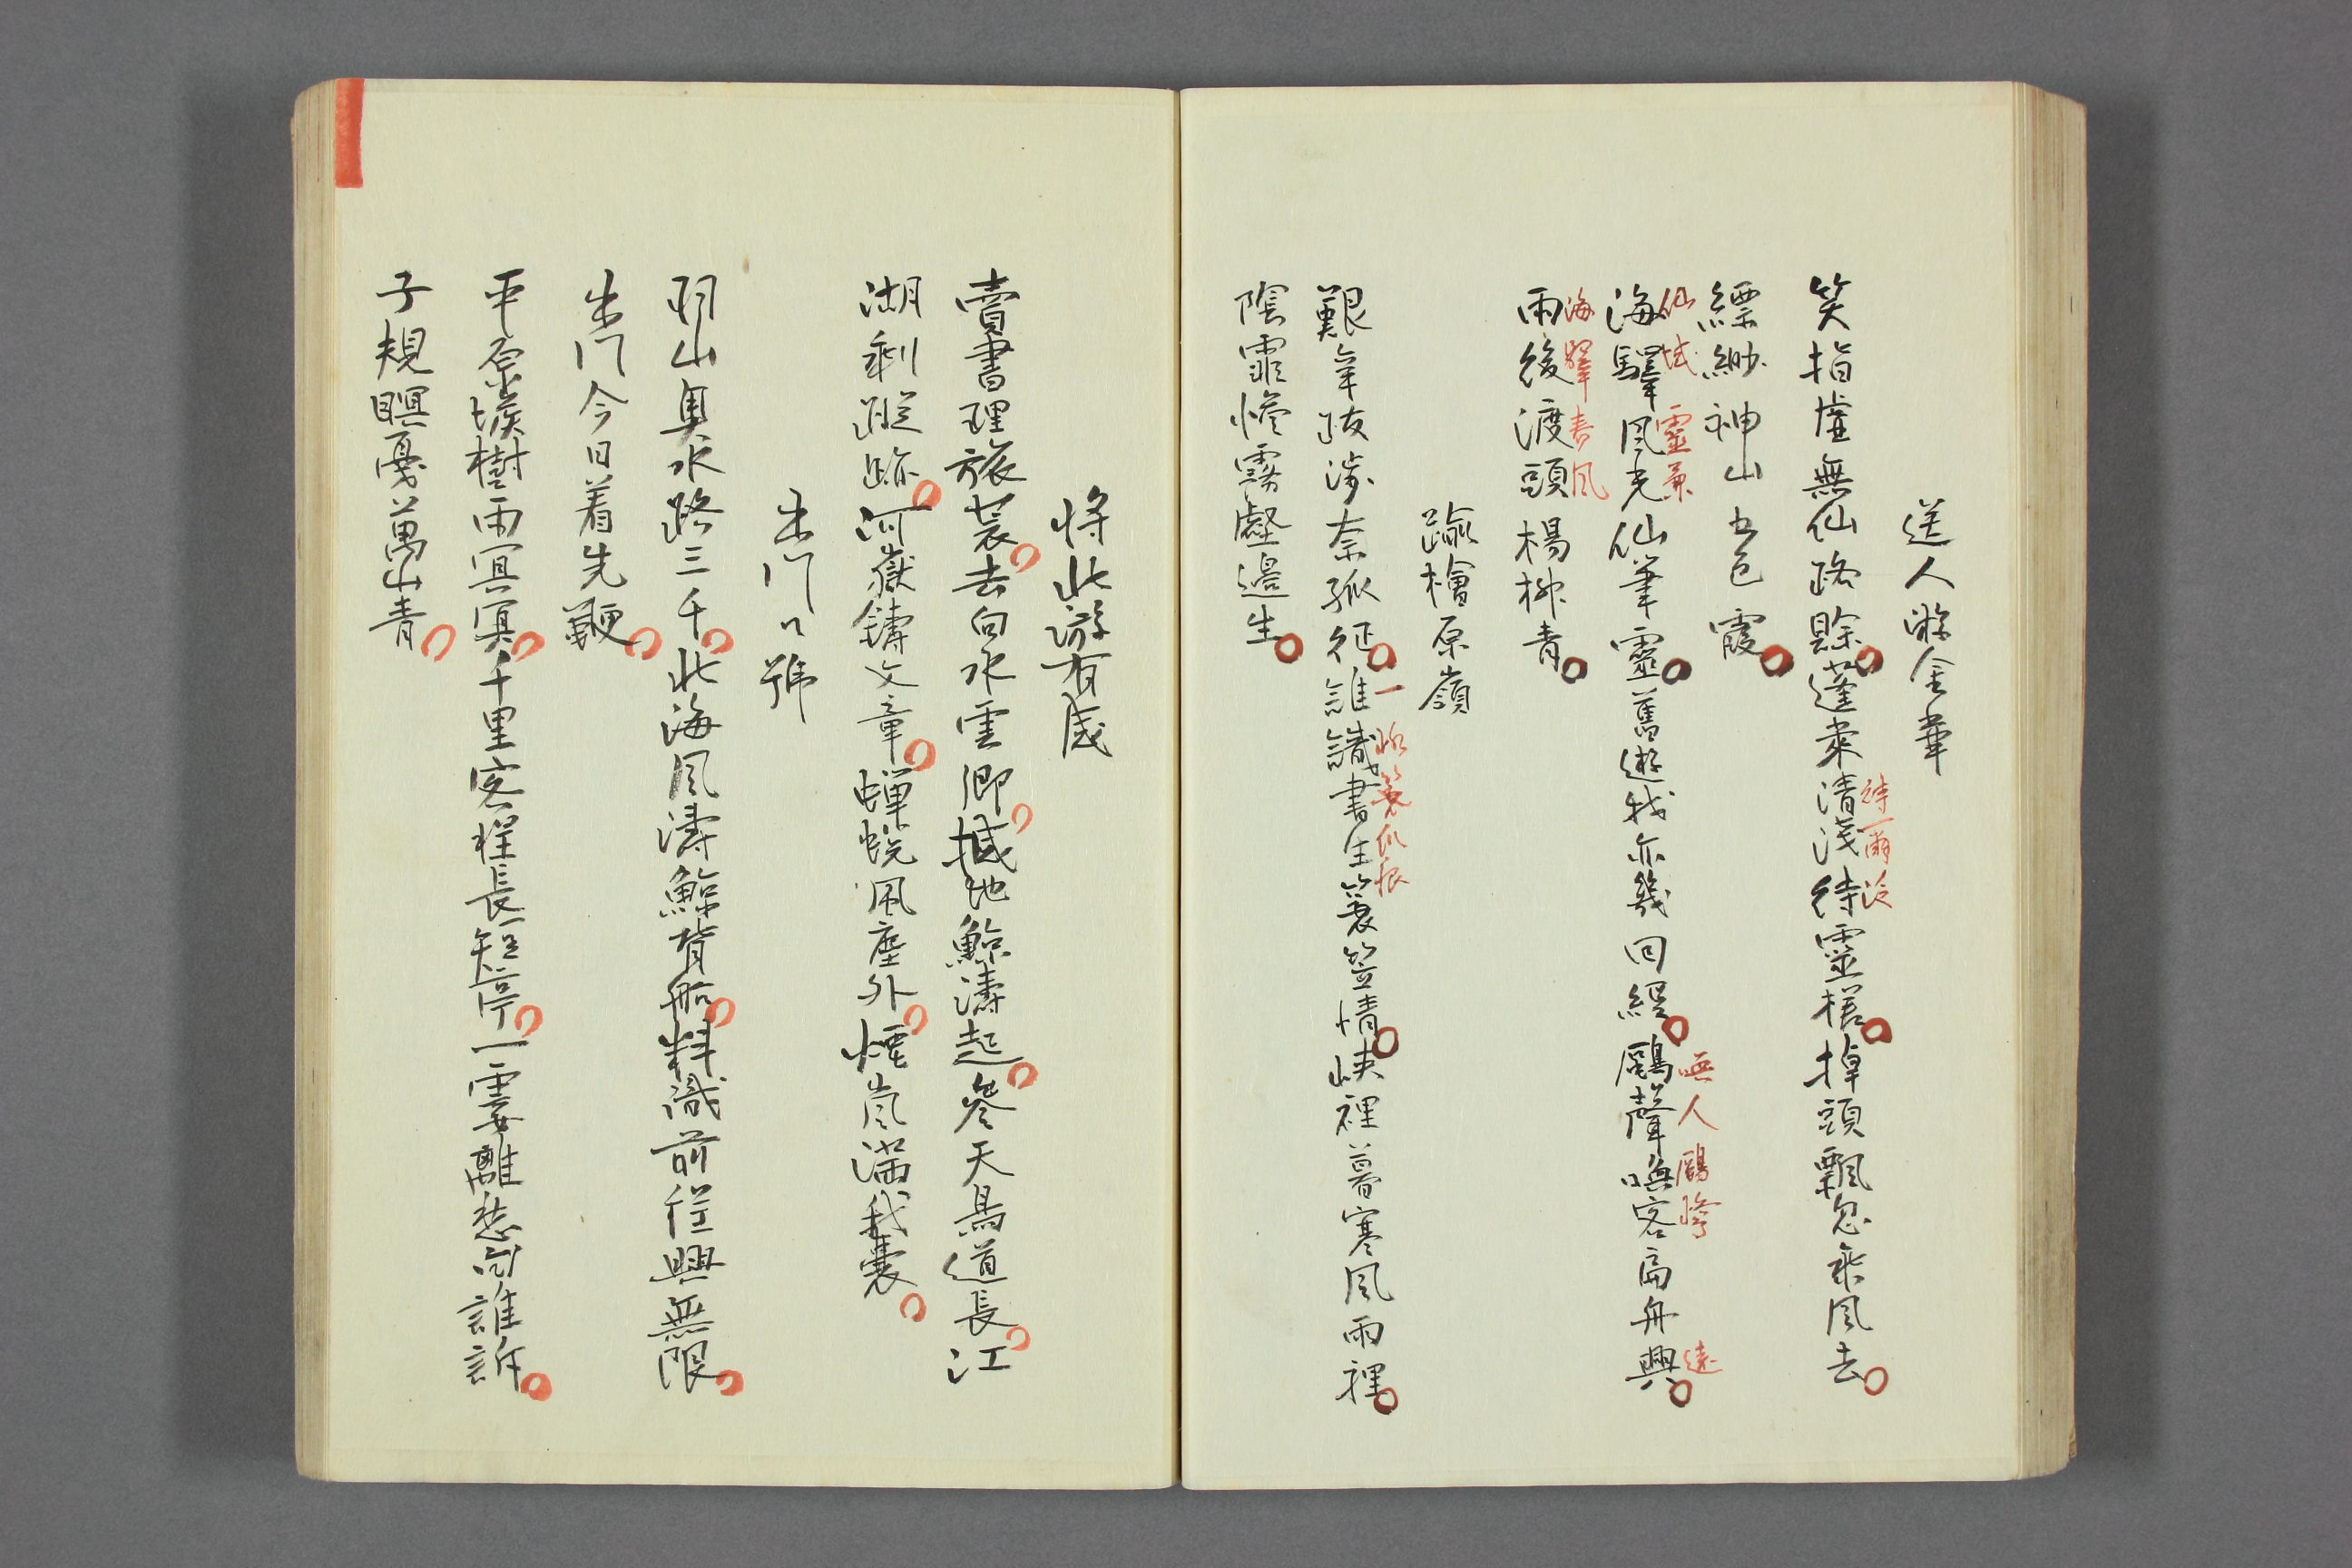 送人游金華
笑指虚無仙路賖蓬萊清淺待靈槎掉頭飄忽乘風去
待爾泛
縹緲神山五色霞
海驛風光仙筆靈舊遊我亦幾回經鷗聲喚客扁舟興
仙城靈
喚人鷗
遠
雨後渡頭楊柳青
海驛春風
踰檜原嶺
艱辛跋涉奈孤征誰識書生簑笠情峽裡暮寒風雨裡
一
陰霏慘霧壑邊生
將北游有感
賣書理旅裝去向水雲鄉撼地鯨濤起參天鳥道長江
湖剩蹤跡河嶽鑄文章蟬蛻風塵外煙嵐滿我囊
出門口號
羽山奥水路三千北海風濤鯨背船料識前程興無限
出門今日着先鞭
平原堠樹雨冥冥千里客程長短亭一霎離愁向誰訴
子規瞑憂萬山青